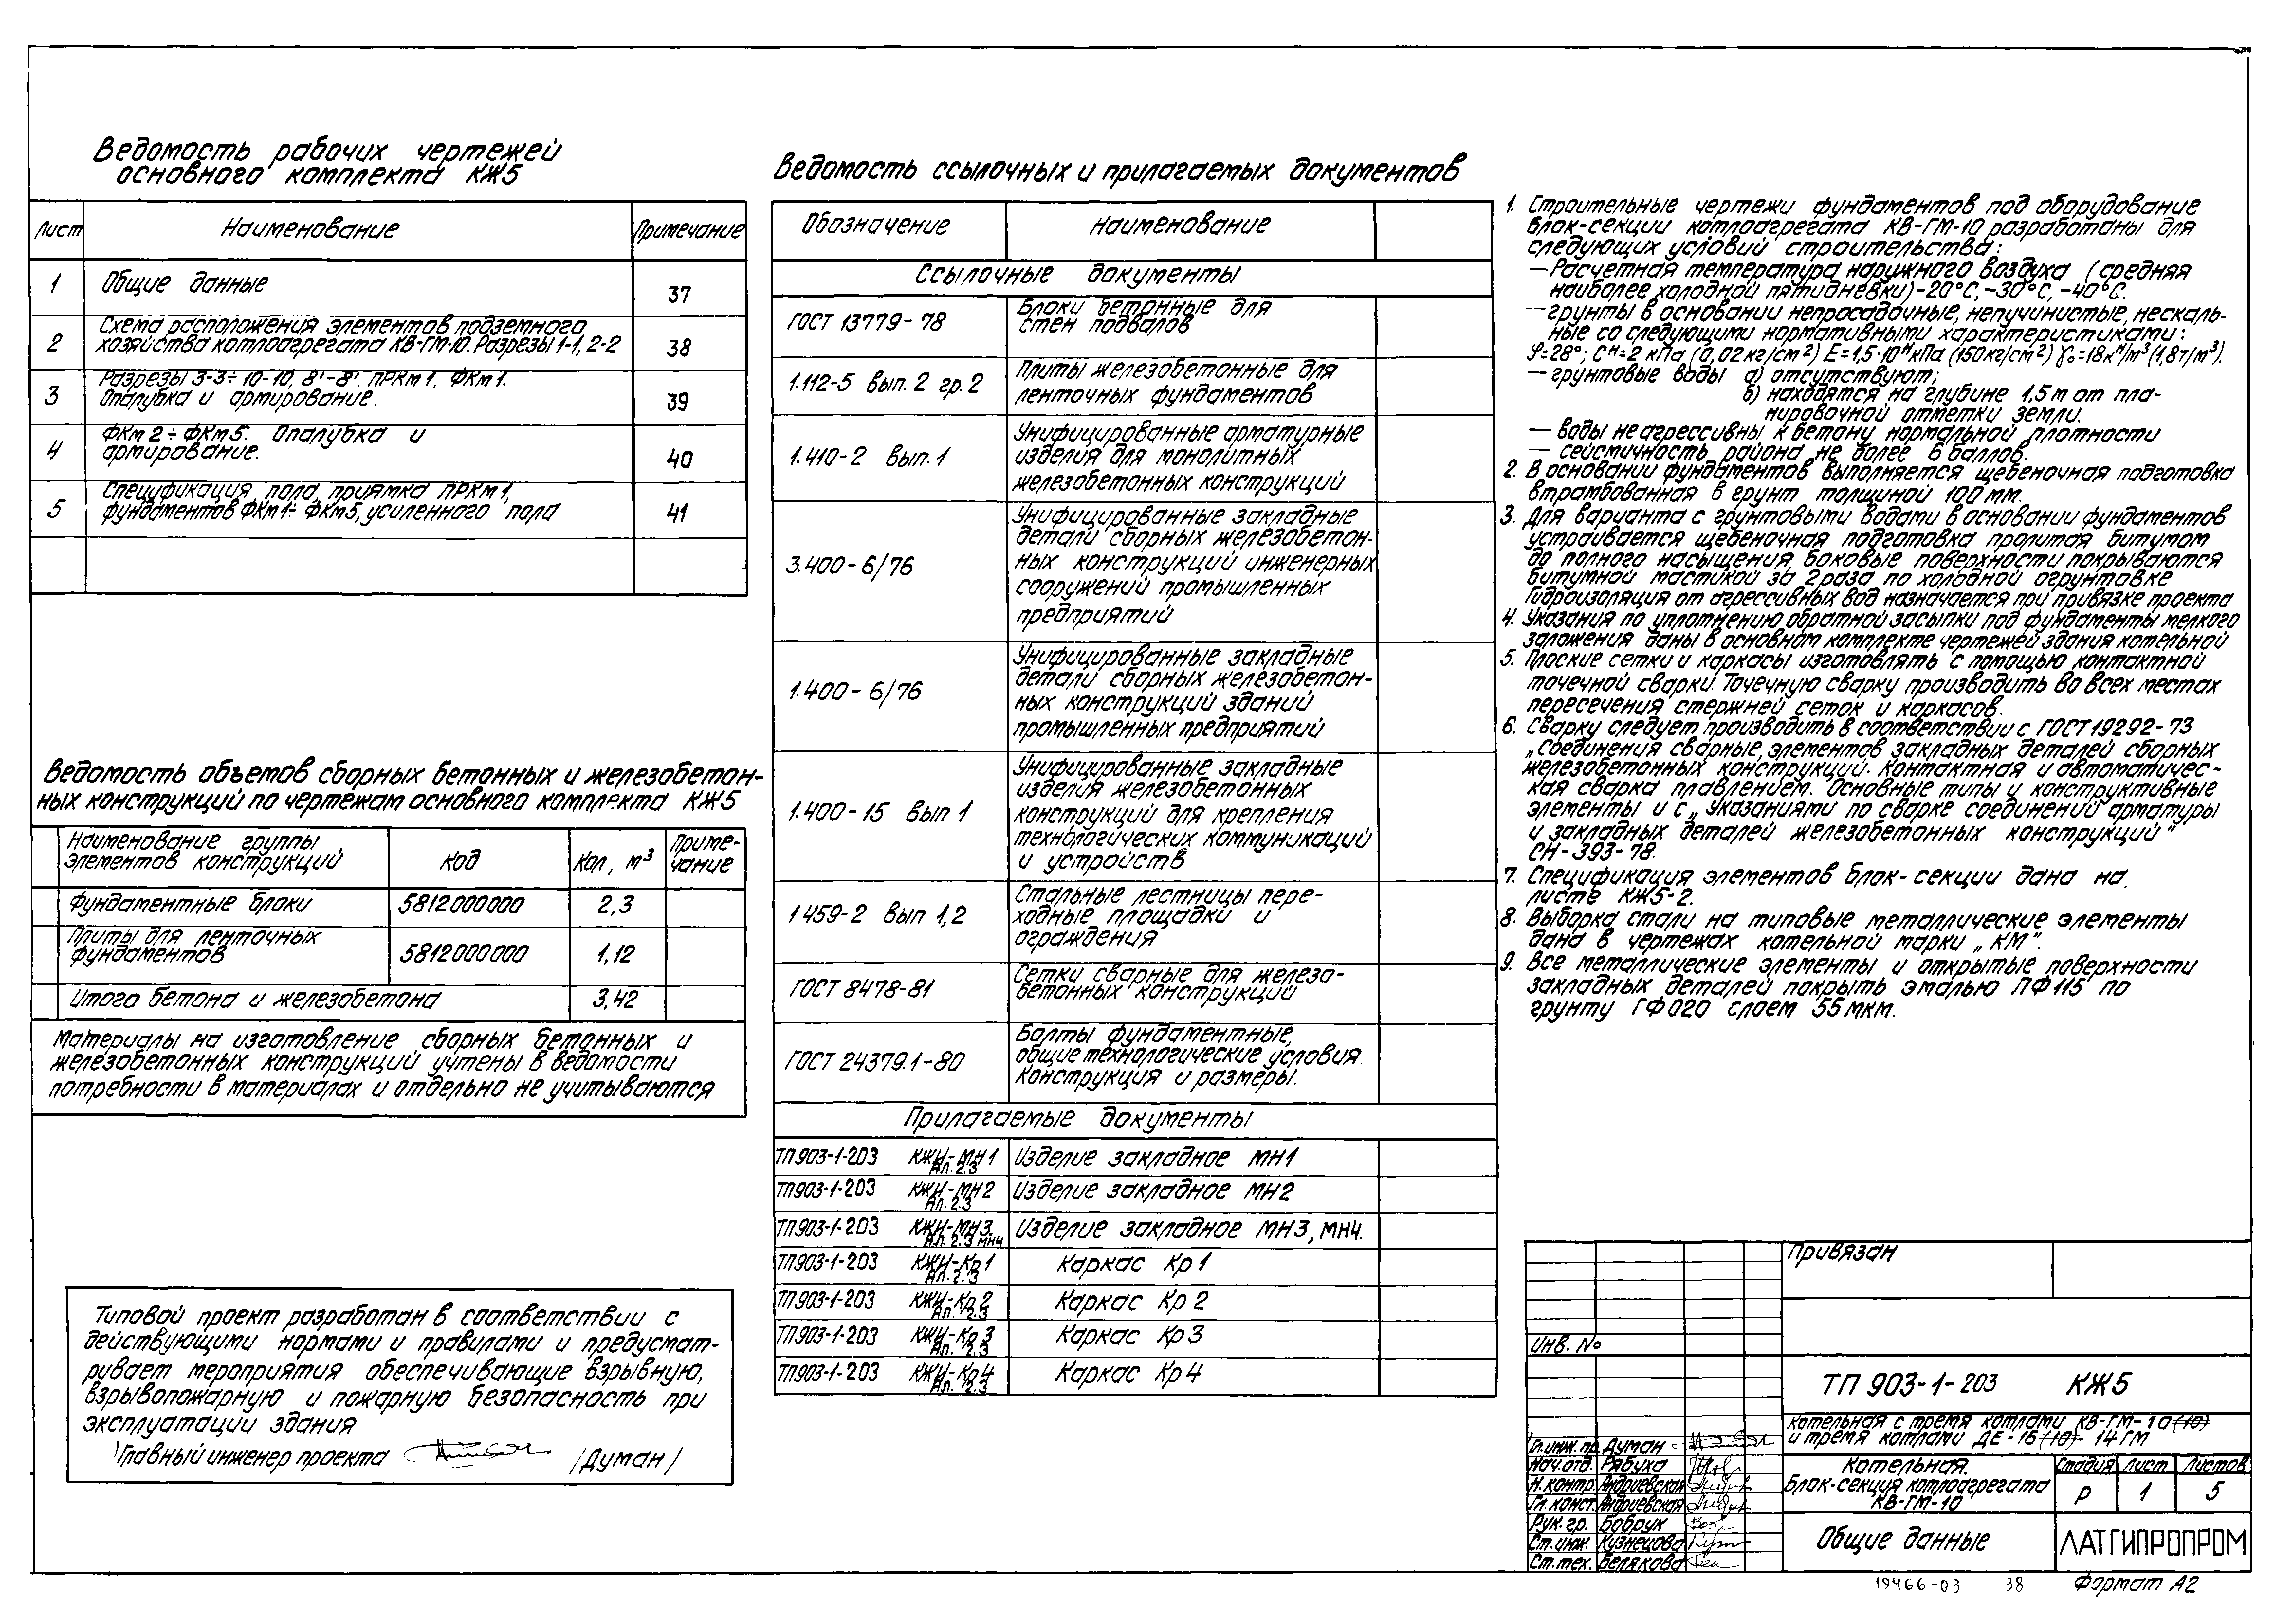 Ведомость рабочих чертежей
основного комплекта КЖ5
Лист Наименование Примечание
1 Общие данные 37
2 Схема расположения элементов подземного
хозяйства котлоагрегата КВ-ГМ-10. Разрезы 1-1, 2-2 38
3 Разрезы 3-3÷10-10, 8'-8'. ПРКм1, ФКм1.
Опалубка и армирование. 39
4 ФКм2÷ФКм5. Опалубка и
армирование. 40
5 Спецификация пола, приямка ПРКм1,
фундаментов ФКм1÷ФКм5, усиленного пола 41
Ведомость объемов сборных бетонных и железобетон-
ных конструкций по чертежам основного комплекта КЖ5
Наименование группы
элементов конструкций Код Кол, м³ Приме-
чание
Фундаментные блоки 5812000000 2,3
Плиты для ленточных
фундаментов 5812000000 1,12
Итого бетона и железобетона 3,42
Материалы на изготовление сборных бетонных и
железобетонных конструкций учтены в ведомости
потребности в материалах и отдельно не учитываются
Типовой проект разработан в соответствии с
действующими нормами и правилами и предусмат-
ривает мероприятия обеспечивающие взрывную,
взрывопожарную и пожарную безопасность при
эксплуатации здания
Главный инженер проекта /Думан/
Ведомость ссылочных и прилагаемых документов
Обозначение Наименование
Ссылочные документы
ГОСТ 13779-78 Блоки бетонные для
стен подвалов
1.112-5 вып. 2 гр. 2 Плиты железобетонные для
ленточных фундаментов
1.410-2 вып. 1 Унифицированные арматурные
изделия для монолитных
железобетонных конструкций
3.400-6/76 Унифицированные закладные
детали сборных железобетон-
ных конструкций инженерных
сооружений промышленных
предприятий
1.400-6/76 Унифицированные закладные
детали сборных железобетон-
ных конструкций зданий
промышленных предприятий
1.400-15 вып 1 Унифицированные закладные
изделия железобетонных
конструкций для крепления
технологических коммуникаций
и устройств
1 459-2 вып 1,2 Стальные лестницы пере-
ходные площадки и
ограждения
ГОСТ 8478-81 Сетки сварные для железо-
бетонных конструкций
ГОСТ 24379.1-80 Болты фундаментные,
общие технологические условия.
Конструкция и размеры.
Прилагаемые документы
ТП903-1-203 КЖИ-МН1 Изделие закладное МН1
Ал. 2.3
ТП903-1-203 КЖИ-МН2 Изделие закладное МН2
Ал. 2.3
ТП903-1-203 КЖИ-МН3. Изделие закладное МН3, МН4.
Ал. 2.3 МН4
ТП903-1-203 КЖИ-Кр1 Каркас Кр1
Ал. 2.3
ТП903-1-203 КЖИ-Кр2 Каркас Кр2
Ал. 2.3
ТП903-1-203 КЖИ-Кр3 Каркас Кр3
Ал. 2.3
ТП903-1-203 КЖИ-Кр4 Каркас Кр4
Ал. 2.3
1. Строительные чертежи фундаментов под оборудование
блок-секции котлоагрегата КВ-ГМ-10 разработаны для
следующих условий строительства:
— Расчетная температура наружного воздуха (средняя
наиболее холодной пятидневки) -20°С, -30°С, -40°С.
— грунты в основании непросадочные, непучинистые, нескаль-
ные со следующими нормативными характеристиками:
φ=28°; Cᴴ=2 кПа (0,02 кг/см²) E=1,5·10⁴кПа (150кг/см²) γ₀=18кН/м³ (1,8т/м³).
— грунтовые воды а) отсутствуют;
б) находятся на глубине 1,5м от пла-
нировочной отметки земли.
— воды неагрессивны к бетону нормальной плотности
— сейсмичность района не более 6 баллов.
2. В основании фундаментов выполняется щебеночная подготовка
втрамбованная в грунт толщиной 100 мм.
3. Для варианта с грунтовыми водами в основании фундаментов
устраивается щебеночная подготовка пролитая битумом
до полного насыщения, боковые поверхности покрываются
битумной мастикой за 2 раза по холодной огрунтовке
Гидроизоляция от агрессивных вод назначается при привязке проекта
4. Указания по уплотнению обратной засыпки под фундаменты мелкого
заложения даны в основном комплекте чертежей здания котельной
5. Плоские сетки и каркасы изготовлять с помощью контактной
точечной сварки. Точечную сварку производить во всех местах
пересечения стержней сеток и каркасов.
6. Сварку следует производить в соответствии с ГОСТ 19292-73
„Соединения сварные, элементов закладных деталей сборных
железобетонных конструкций. Контактная и автоматичес-
кая сварка плавлением. Основные типы и конструктивные
элементы и с „Указаниями по сварке соединений арматуры
и закладных деталей железобетонных конструкций"
СН-393-78.
7. Спецификация элементов блок-секции дана на
листе КЖ5-2.
8. Выборка стали на типовые металлические элементы
дана в чертежах котельной марки „КМ".
9. Все металлические элементы и открытые поверхности
закладных деталей покрыть эмалью ПФ115 по
грунту ГФ020 слоем 55 мкм.
Привязан
Инв. №
ТП 903-1-203 КЖ5
Котельная с тремя котлами КВ-ГМ-10 (10)
и тремя котлами ДЕ-16 (10)- 14ГМ
Гл. инж. пр. Думан
Нач. отд. Рябуха
Н. контр. Андриевская
Гл. конст. Андриевская
Рук. гр. Бобрук
Ст. инж. Кузнецова
Ст. тех. Белякова
Котельная.
Блок-секция котлоагрегата
КВ-ГМ-10
Стадия Лист Листов
Р 1 5
Общие данные
ЛАТГИПРОПРОМ
19466-03 38 Формат А2